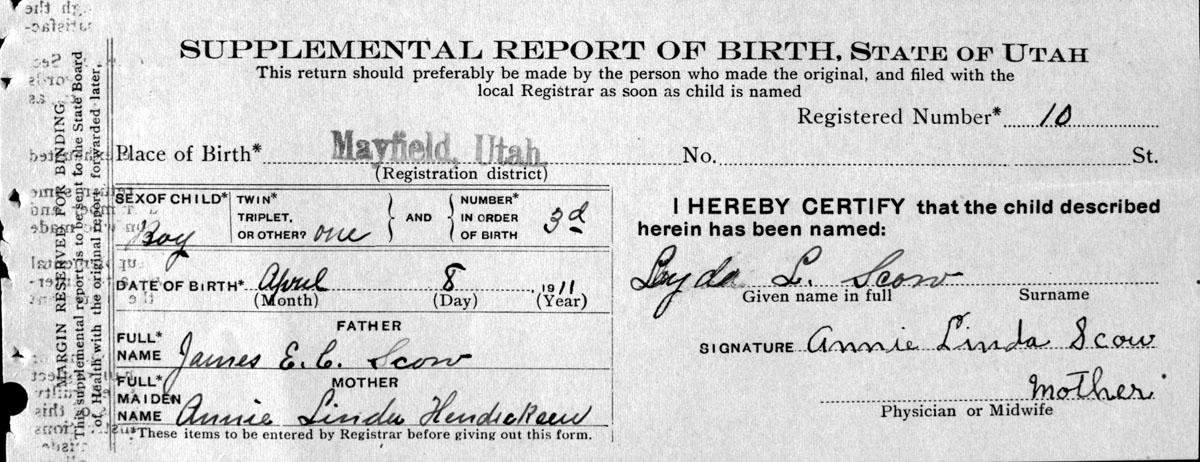 SUPPLEMENTAL REPORT OF BIRTH, STATE OF UTAH
This return should preferably be made by the person who made the original, and filed with the
local Registrar as soon as child is named
Registered Number* 10
Place of Birth* Mayfield, Utah. No. St.
(Registration district)
SEX OF CHILD* Boy
TWIN* TRIPLET, OR OTHER? one
AND
NUMBER* IN ORDER OF BIRTH 3d
DATE OF BIRTH* April 8, 1911
(Month) (Day) (Year)
FATHER
FULL* NAME James E. C. Scow
MOTHER
FULL* MAIDEN NAME Annie Linda
*These items to be entered by Registrar before giving out this form.
I HEREBY CERTIFY that the child described
herein has been named:
L. Scow
Given name in full Surname
SIGNATURE Annie Linda Scow
Mother
Physician or Midwife
MARGIN RESERVED FOR BINDING
This supplemental report is to be sent to the State Board
of Health with the original report forwarded later